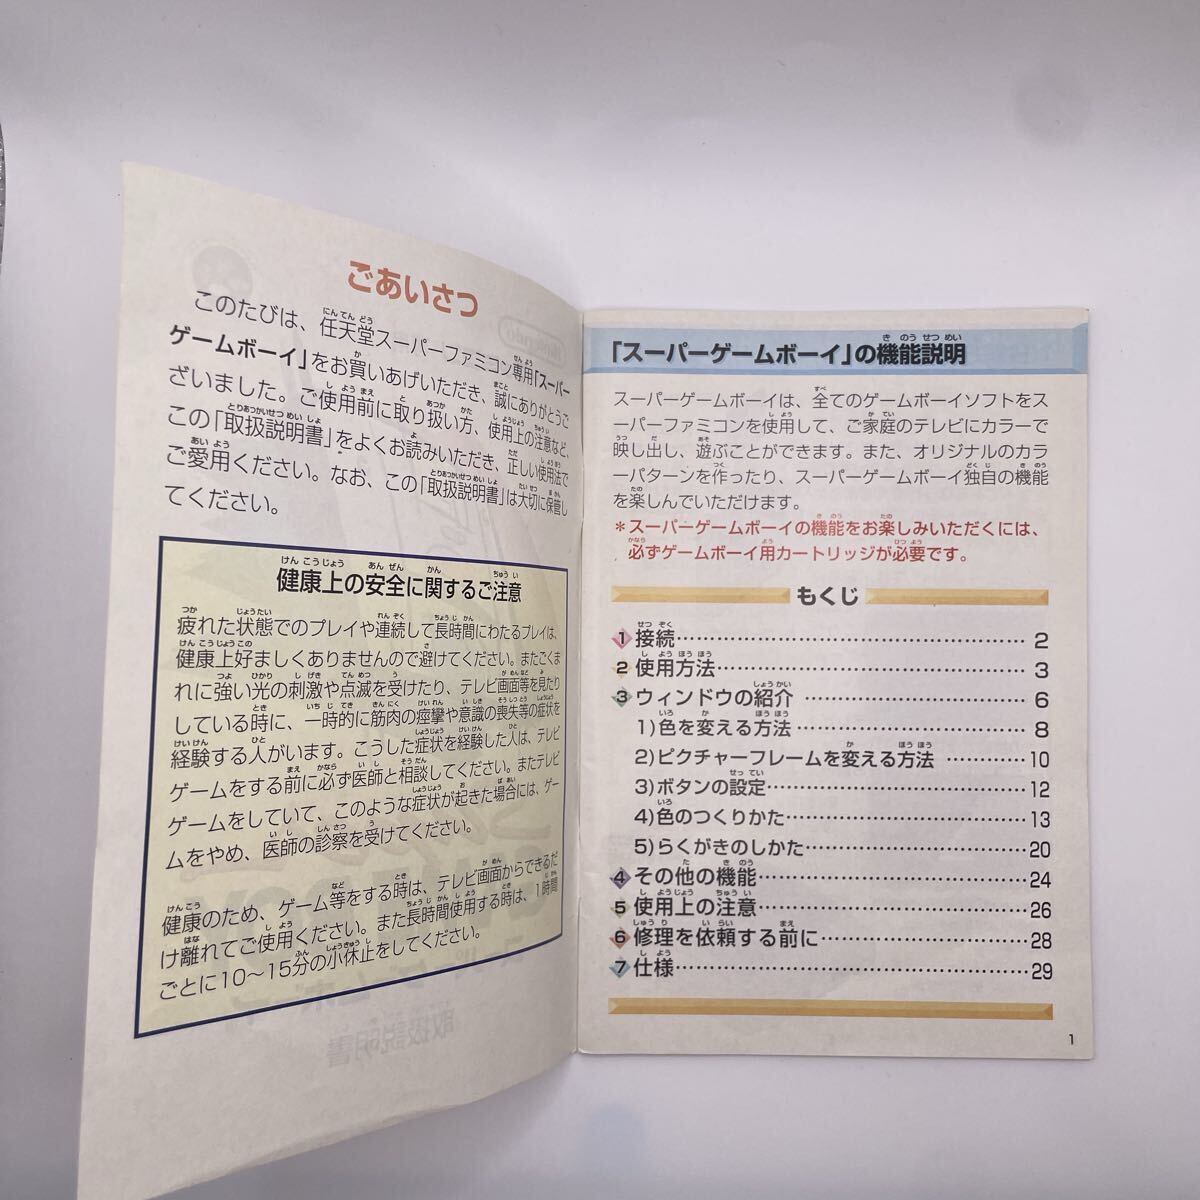 ごあいさつ
このたびは、任天堂スーパーファミコン専用「スーパー
ゲームボーイ」をお買いあげいただき、誠にありがとうご
ざいました。ご使用前に取り扱い方、使用上の注意など、
この「取扱説明書」をよくお読みいただき、正しい使用法で
ご愛用ください。なお、この「取扱説明書」は大切に保管し
てください。
健康上の安全に関するご注意
疲れた状態でのプレイや連続して長時間にわたるプレイは、
健康上好ましくありませんので避けてください。またごくま
れに強い光の刺激や点滅を受けたり、テレビ画面等を見たり
している時に、一時的に筋肉の痙攣や意識の喪失等の症状を
経験する人がいます。こうした症状を経験した人は、テレビ
ゲームをする前に必ず医師と相談してください。またテレビ
ゲームをしていて、このような症状が起きた場合には、ゲー
ムをやめ、医師の診察を受けてください。
健康のため、ゲーム等をする時は、テレビ画面からできるだ
け離れてご使用ください。また長時間使用する時は、1時間
ごとに10〜15分の小休止をしてください。
「スーパーゲームボーイ」の機能説明
スーパーゲームボーイは、全てのゲームボーイソフトをス
ーパーファミコンを使用して、ご家庭のテレビにカラーで
映し出し、遊ぶことができます。また、オリジナルのカラ
ーパターンを作ったり、スーパーゲームボーイ独自の機能
を楽しんでいただけます。
＊スーパーゲームボーイの機能をお楽しみいただくには、
必ずゲームボーイ用カートリッジが必要です。
もくじ
1 接続…………………………………… 2
2 使用方法……………………………… 3
3 ウィンドウの紹介 …………………… 6
1)色を変える方法…………………… 8
2)ピクチャーフレームを変える方法 …………10
3)ボタンの設定……………………………12
4)色のつくりかた…………………………13
5)らくがきのしかた………………………20
4 その他の機能……………………………24
5 使用上の注意……………………………26
6 修理を依頼する前に……………………28
7 仕様………………………………………29
1